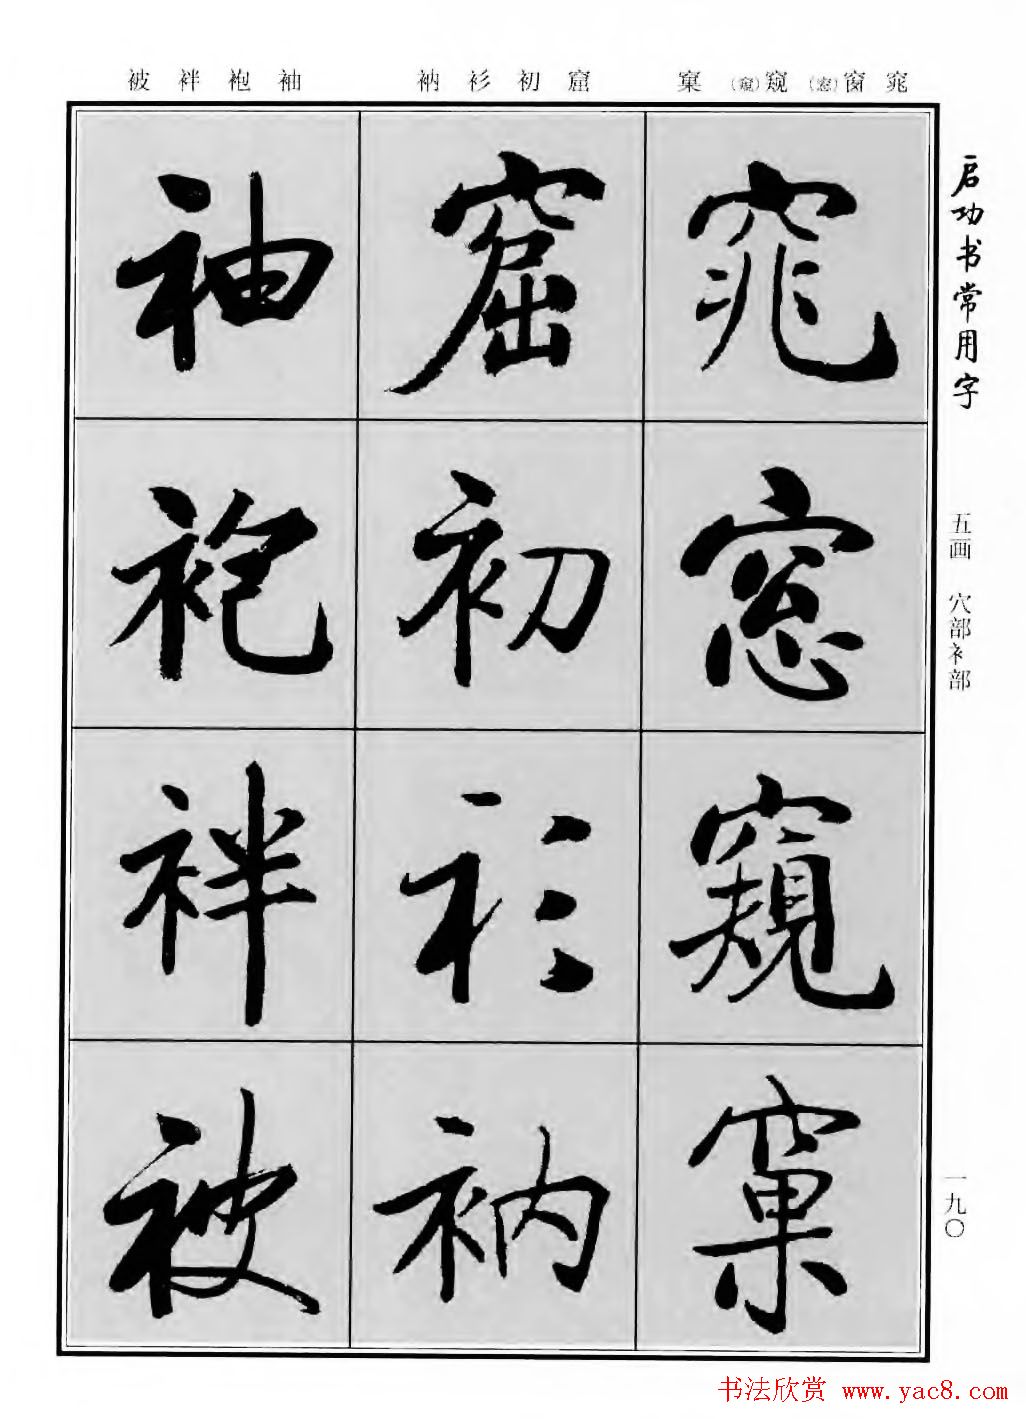 窕窗(窓)窥(窺)窠 窟初衫衲 袖袍袢被
启功书常用字
五画 穴部衤部
一九〇
窕
窓
窺
窠
窟
初
衫
衲
袖
袍
袢
被
书法欣赏 www.yac8.com